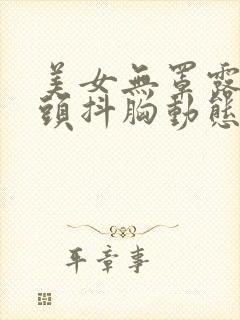 美女無罩露
頭抖胸動態
平章事